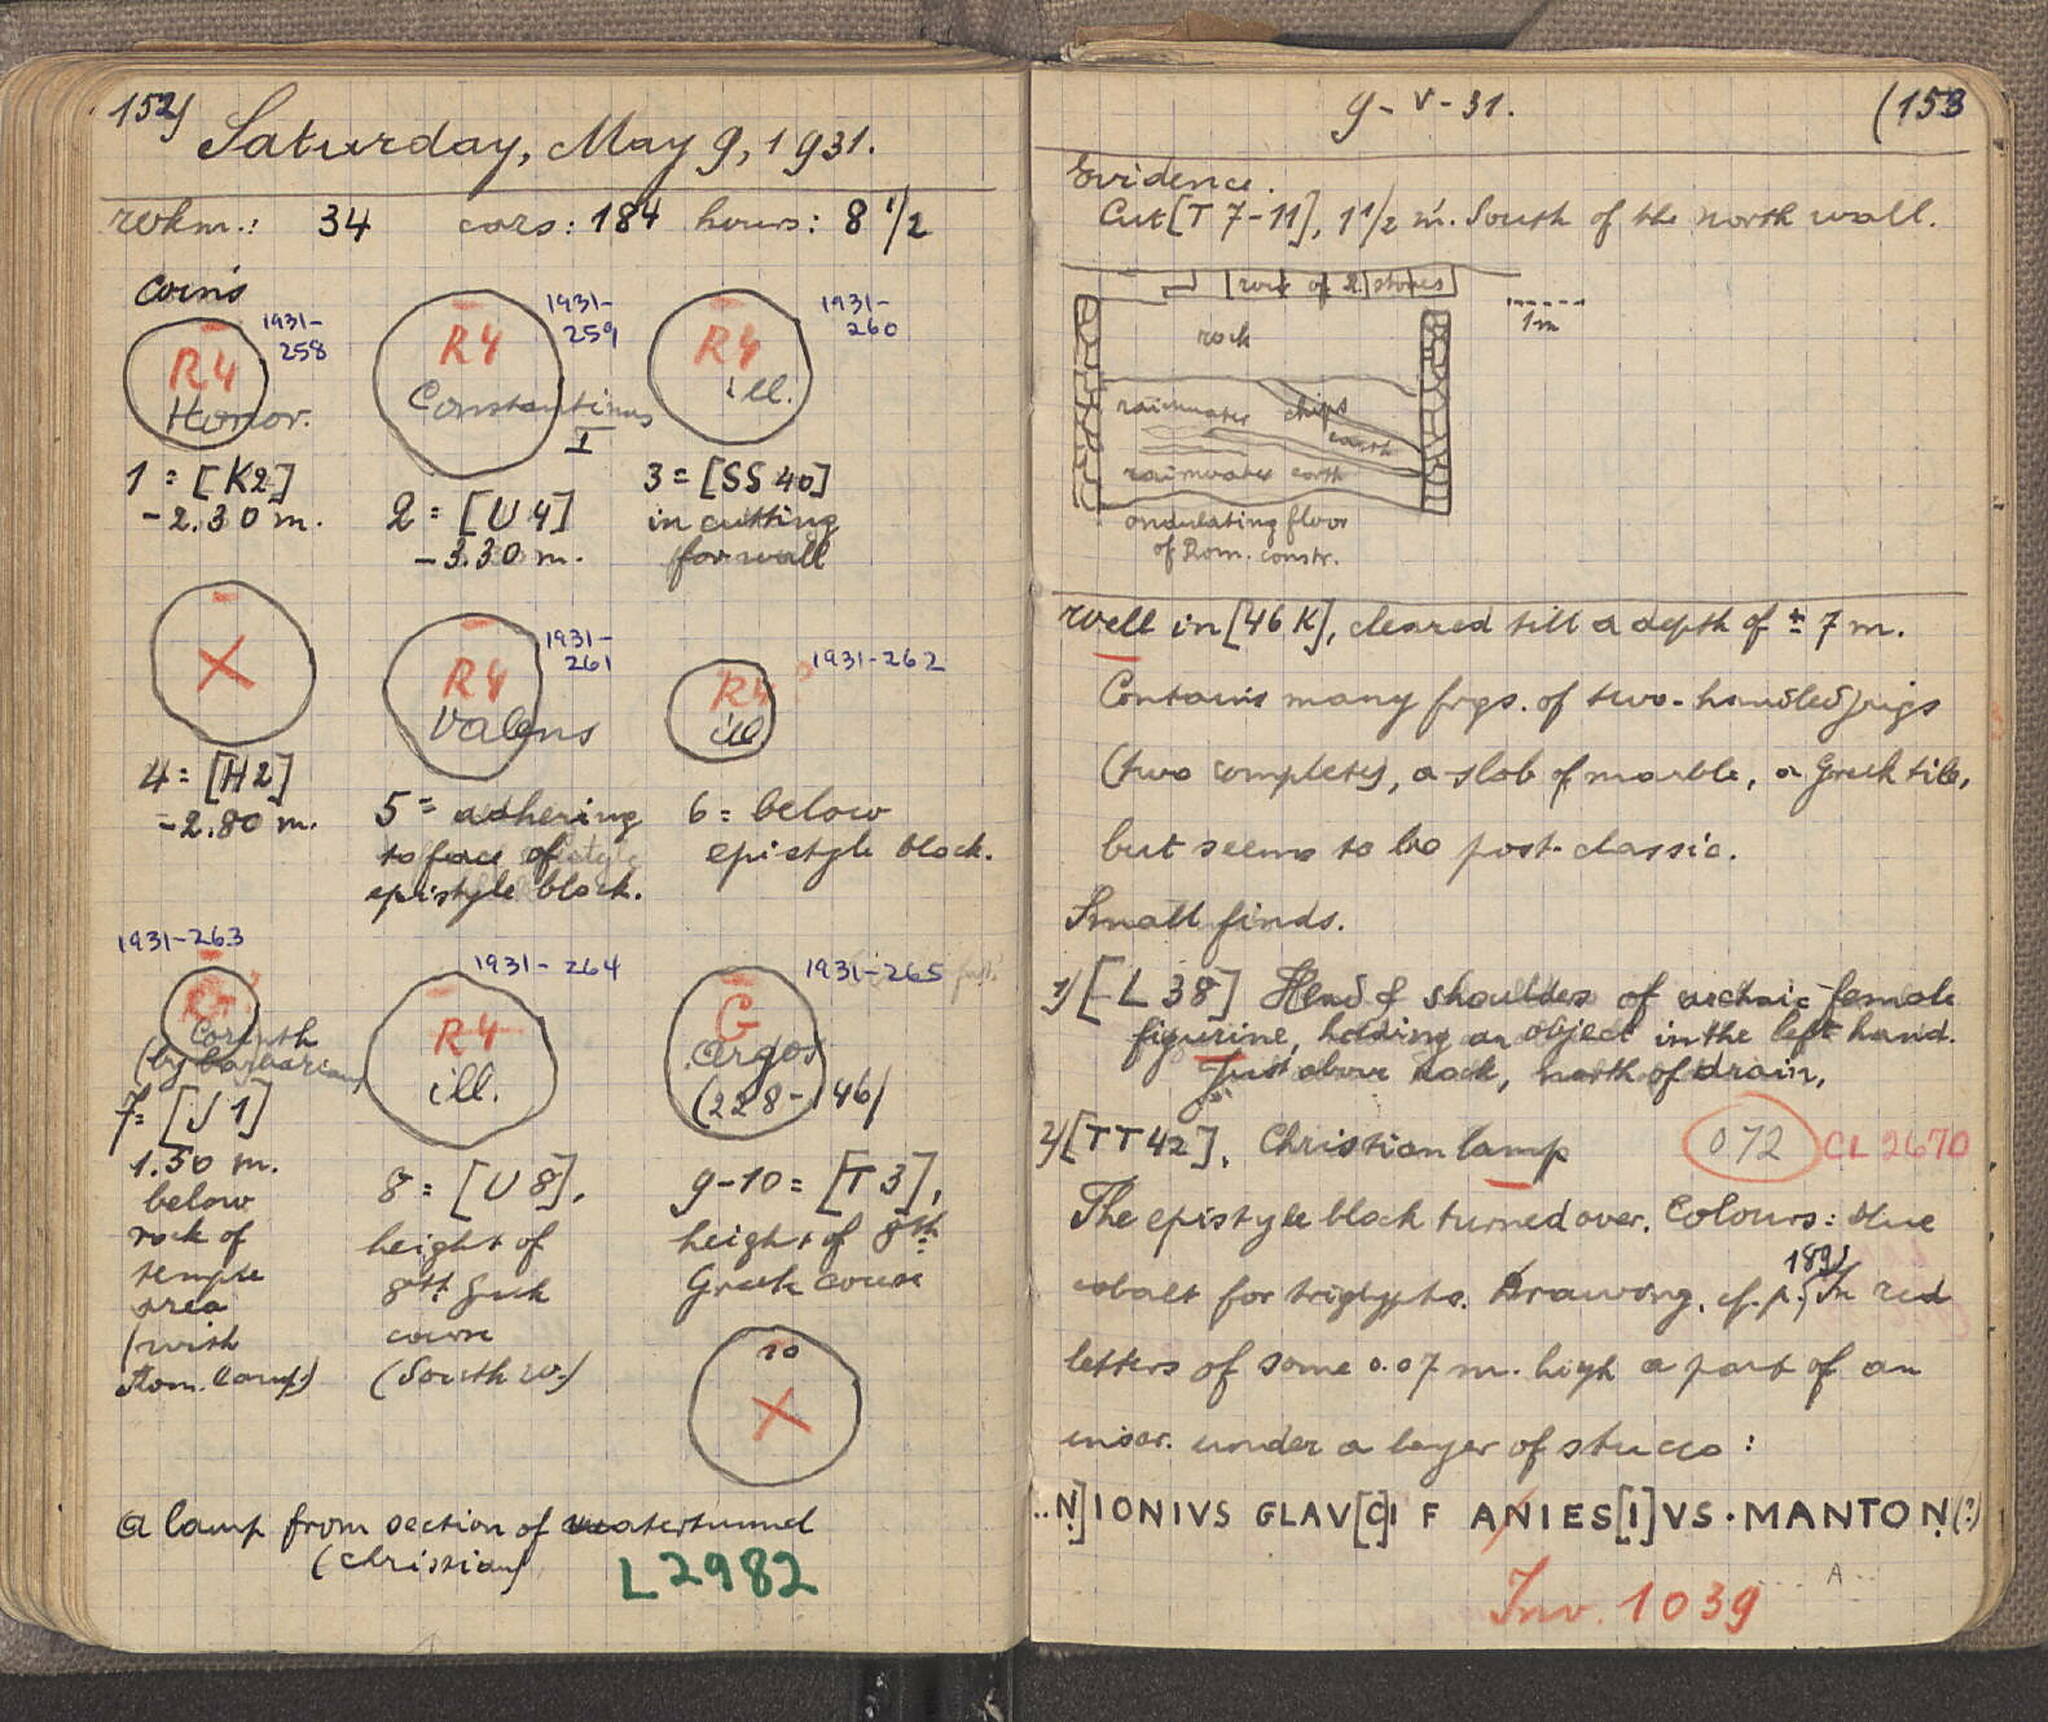 152)
Saturday, May 9, 1931.
wkm.: 34 cars: 184 hours: 8 1/2
Coins
1931-
258
R4
Honor.
1 = [K2]
-2.30 m.
1931-
259
R4
Constantinus
I
2 = [U4]
-3.30 m.
1931-
260
R4
ill.
3 = [SS 40]
in cutting
for wall
X
4 = [H2]
-2.80 m.
1931-
261
R4
Valens
5 = adhering
to face of
epistyle block.
1931-262
R4 ?
ill
6 = below
epistyle block.
1931-263
Corinth
(by barbarians)
7 = [J1]
1.50 m.
below
rock of
temple
area
(with
Rom. lamp)
1931-264
R4
ill.
8 = [U8],
height of
8th Greek
course
(South w.)
1931-265
G
Argos
(228-146)
9-10 = [T3],
height of 8th
Greek course
10
X
A lamp from section of watertunnel
(Christian)
L2982
9-V-31.
(153
Evidence.
Cut [T 7-11], 1 1/2 m. South of the north wall.
row of 2 stones
1m
rock
rainwater chips
earth
rainwater earth
ondulating floor
of Rom. constr.
Well in [46 K], cleared till a depth of ± 7 m.
Contains many frgs. of two-handled jugs
(two complete), a slab of marble, a Greek tile,
but seems to be post-classic.
Small finds.
1) [L 38] Head & shoulders of archaic female
figurine, holding an object in the left hand.
Just above rock, north of drain,
2) [TT42], Christian lamp 072 CL 2670
The epistyle block turned over. Colours: blue
cobalt for triglyphs. Drawing, cf. p. 189). In red
letters of some 0.07 m. high a part of an
inscr. under a layer of stucco:
..N]IONIVS GLAV[C]I F ANIES[I]VS · MANTON(?)
A
Inv. 1039